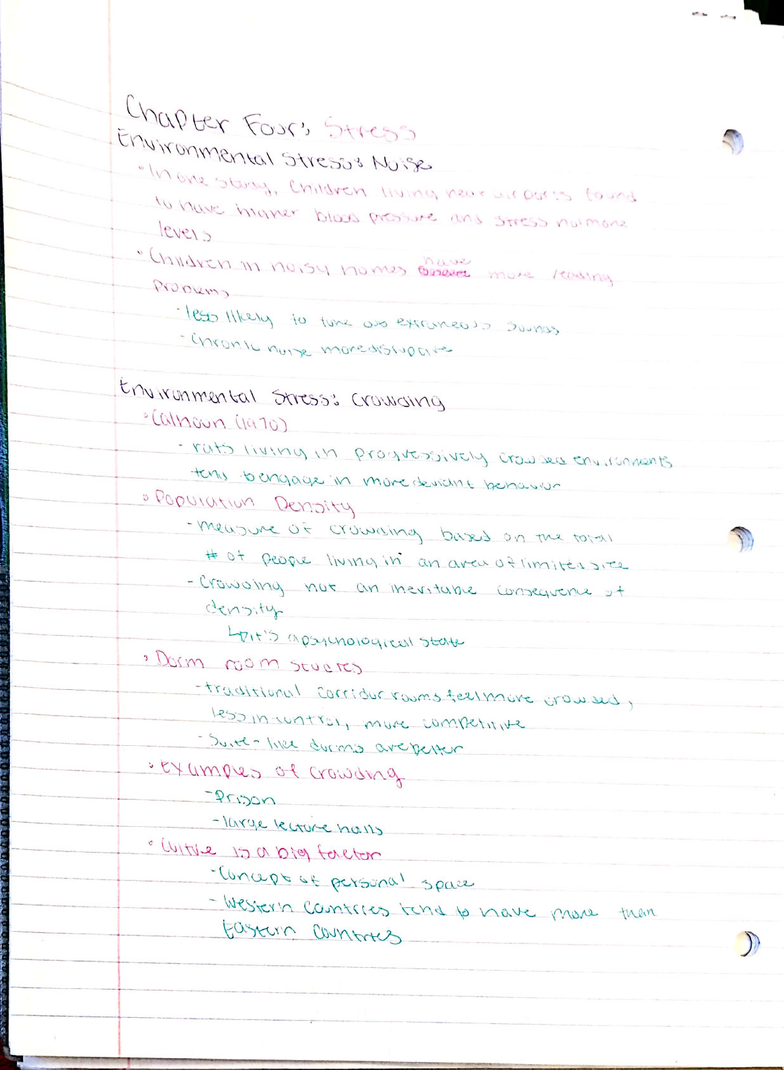 Chapter Four: Stress
Environmental Stress: Noise
• In one study, Children living near airports found
to have higher blood pressure and stress hormone
levels
• Children in noisy homes have more reading
problems
- less likely to tune out extraneous sounds
- Chronic noise more disruptive
Environmental Stress: Crowding
• Calhoun (1970)
- rats living in progressively crowded environments
tend to engage in more deviant behavior
• Population Density
- measure of crowding based on the total
# of people living in an area of limited size
- Crowding not an inevitable consequence of
density
↳ it's a psychological state
• Dorm room studies
- traditional corridor rooms feel more crowded,
less in control, more competitive
- Suite-like dorms are better
• Examples of crowding
- Prison
- large lecture halls
• Culture is a big factor
- Concept of personal space
- Western Countries tend to have more than
Eastern Countries